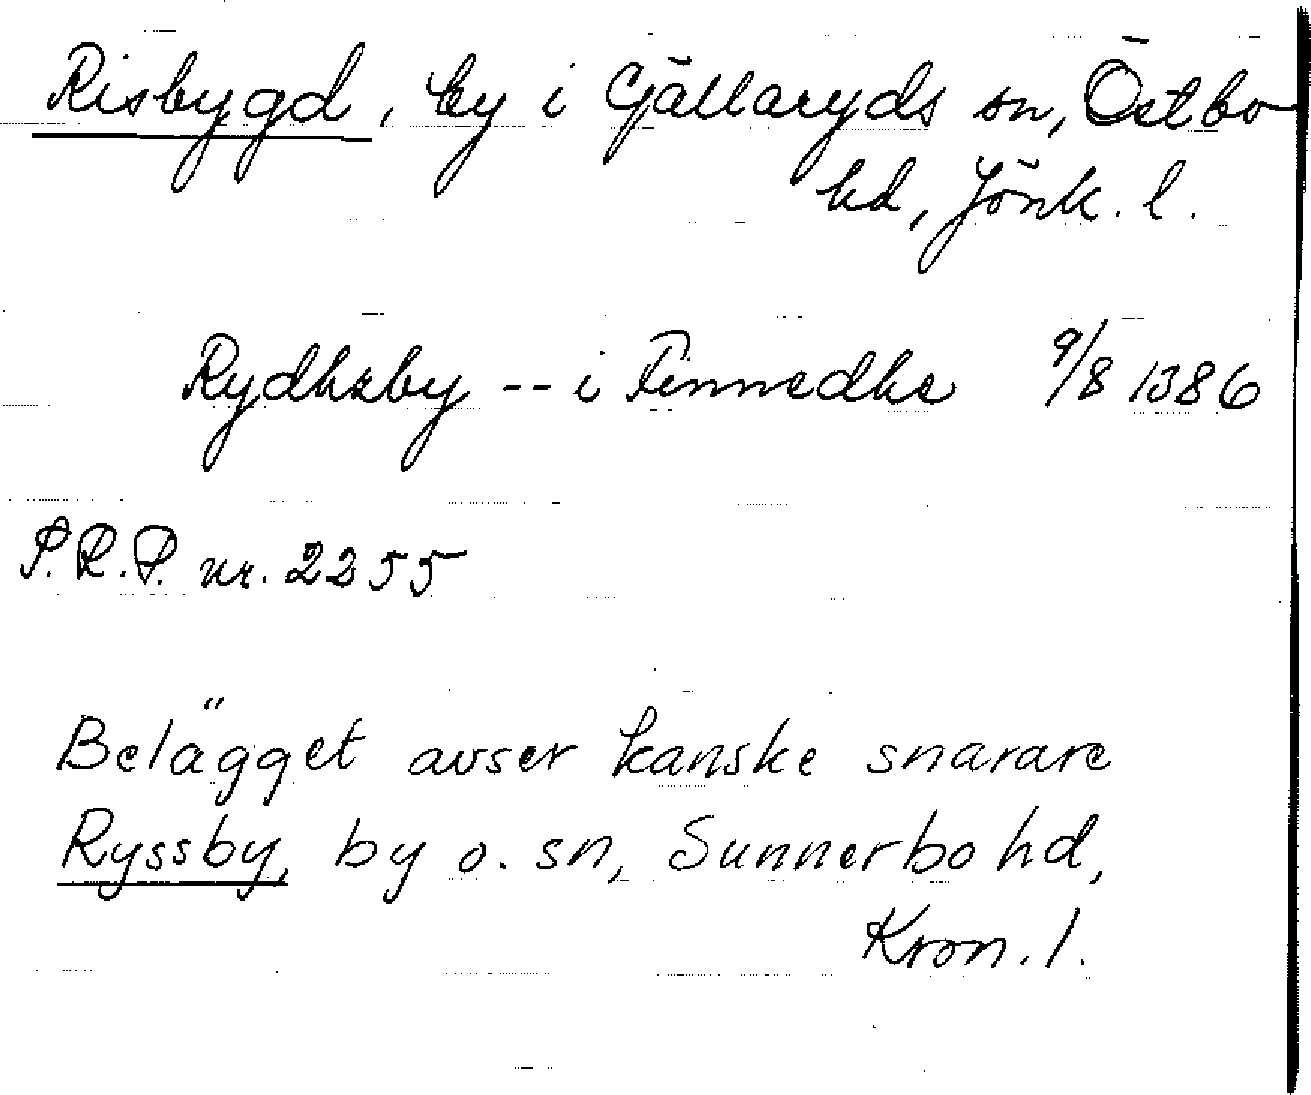 Risbygd, by i Gällaryds sn, Östbo
hd, Jönk. l.
Rydhzby -- i Finnedhe 9/8 1386
S.R.P. nr. 2255
Belägget avser kanske snarare
Ryssby, by o. sn, Sunnerbo hd,
Kron. l.